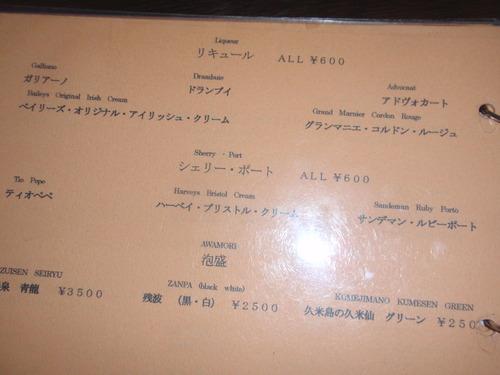 Liqueur
リキュール ALL ¥600
Galliano Drambuie Advocaat
ガリアーノ ドランブイ アドヴォカート
Baileys Original Irish Cream Grand Marnier Cordon Rouge
ベイリーズ・オリジナル・アイリッシュ・クリーム グランマニエ・コルドン・ルージュ
Sherry · Port
シェリー・ポート ALL ¥600
Tio Pepe Harveys Bristol Cream Sandeman Ruby Porto
ティオペペ ハーベイ・ブリストル・クリーム サンデマン・ルビーポート
AWAMORI
泡盛
ZUISEN SEIRYU ZANPA (black white) KUMEJIMANO KUMESEN GREEN
泉 青龍 ¥3500 残波 (黒・白) ¥2500 久米島の久米仙 グリーン ¥250